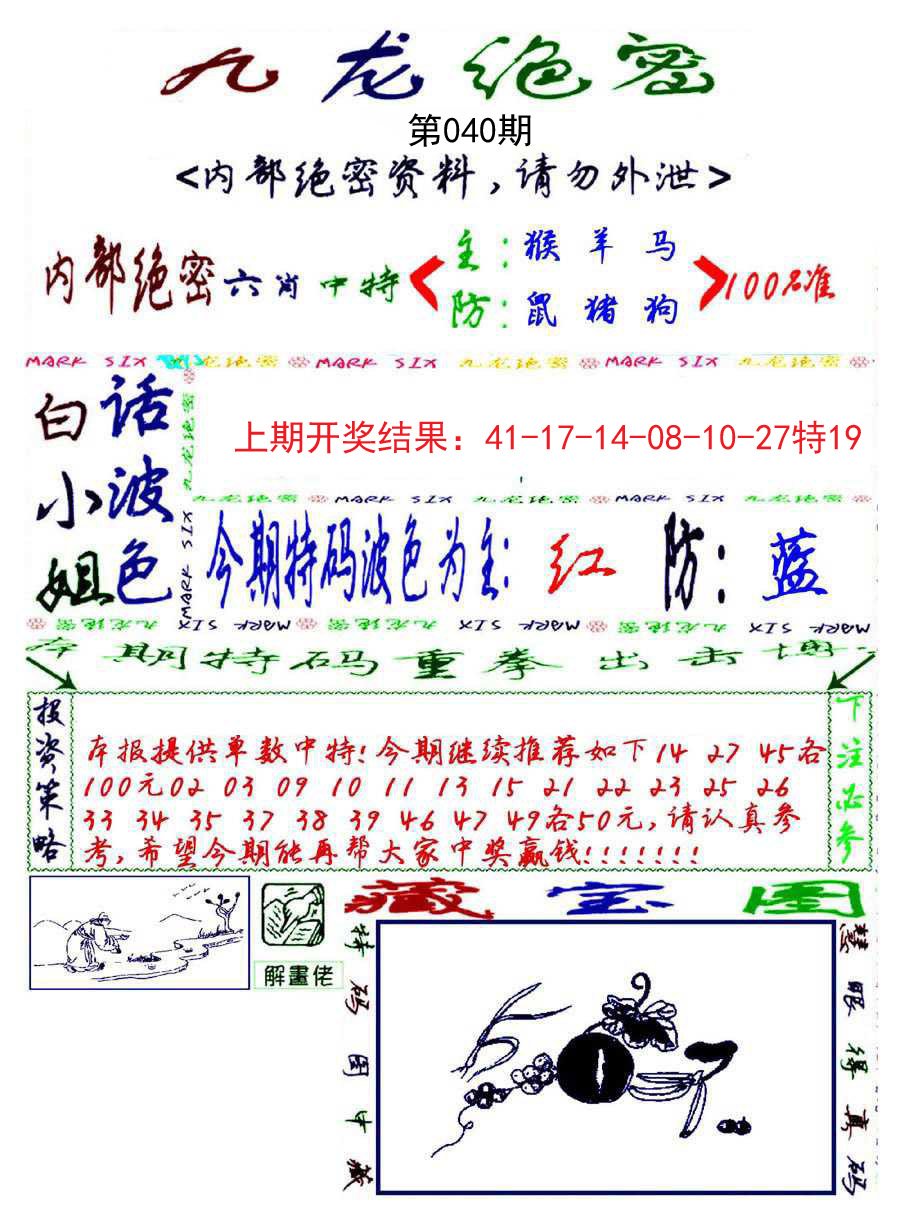 九龙绝密
第040期
<内部绝密资料,请勿外泄>
内部绝密六肖中特
主:猴羊马
防:鼠猪狗
100%准
MARK SIX 九龙绝密 MARK SIX 九龙绝密 MARK SIX 九龙绝密
白小姐
话波色
九龙绝密
MARK SIX
上期开奖结果：41-17-14-08-10-27特19
九龙绝密 MARK SIX 九龙绝密 MARK SIX 九龙绝密
今期特码波色为主:红 防:蓝
九龙绝密 MARK SIX 九龙绝密 MARK SIX 九龙绝密 MARK SIX
本期特码重拳出击博
投资策略
本报提供单数中特!今期继续推荐如下14 27 45各
100元02 03 09 10 11 13 15 21 22 23 25 26
33 34 35 37 38 39 46 47 49各50元,请认真参
考,希望今期能再帮大家中奖赢钱!!!!!!!
下注必参
解畫佬
藏宝图
特码图中藏
慧眼得真码